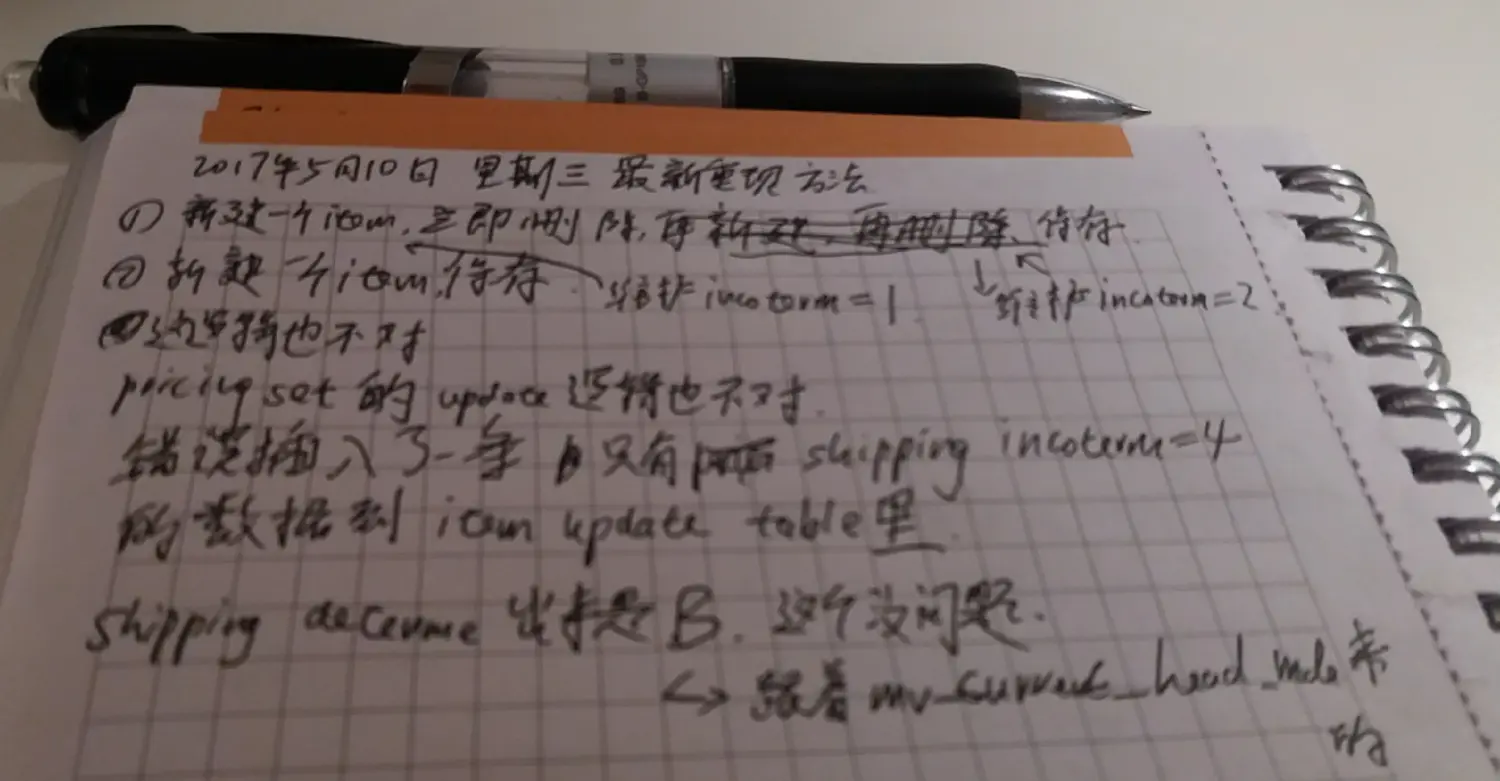 2017年5月10日 星期三 最新重现方法
① 新建一个item, 立即删除, 再新建, 再删除, 保存.
② 新建一个item, 保存.
维护incoterm=1
维护incoterm=2
这逻辑也不对
pricing set 的 update 逻辑也不对.
错误插入了一条 只有 shipping incoterm=4
的数据到 item update table里.
shipping determe 出来是 B. 这个没问题.
↳ 跟着 mv_current_head_mode 来
的